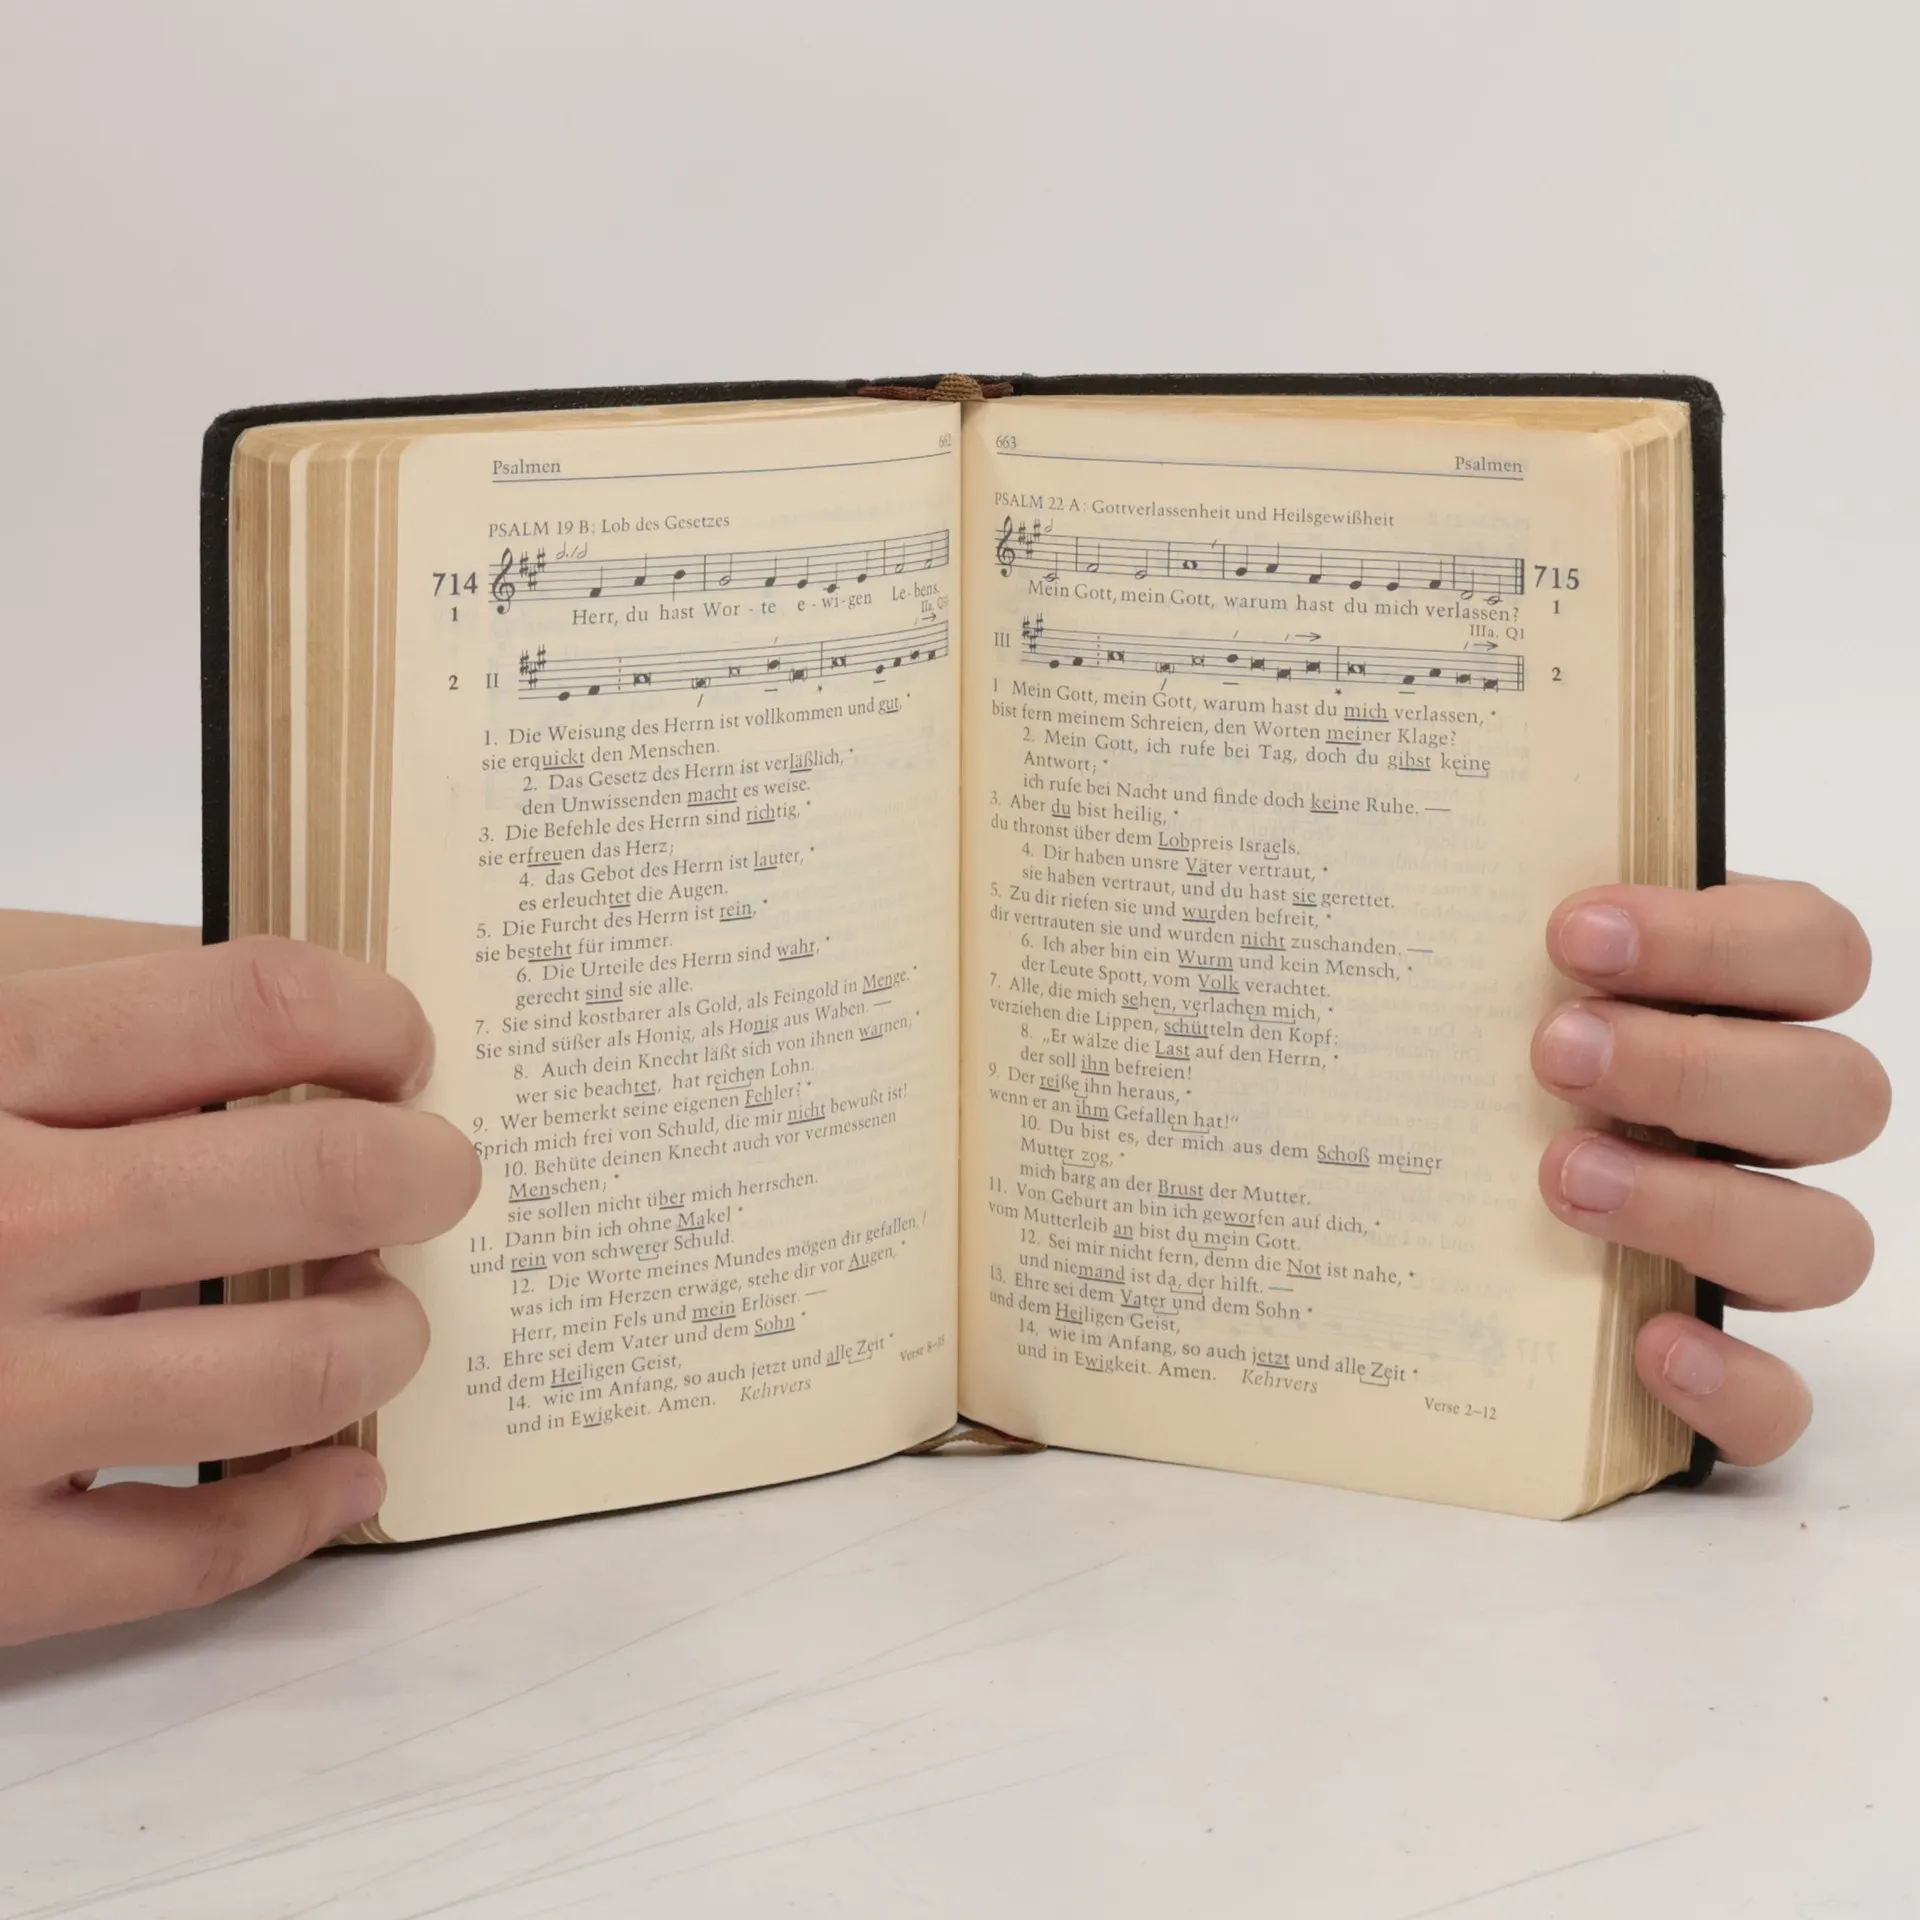 662
Psalmen
PSALM 19 B: Lob des Gesetzes
714
1
Herr, du hast Wor - te e - wi - gen Le - bens.
IIa.
2 II
1. Die Weisung des Herrn ist vollkommen und gut, *
sie erquickt den Menschen.
2. Das Gesetz des Herrn ist verläßlich, *
den Unwissenden macht es weise.
3. Die Befehle des Herrn sind richtig, *
sie erfreuen das Herz;
4. das Gebot des Herrn ist lauter, *
es erleuchtet die Augen.
5. Die Furcht des Herrn ist rein, *
sie besteht für immer.
6. Die Urteile des Herrn sind wahr, *
gerecht sind sie alle.
7. Sie sind kostbarer als Gold, als Feingold in Menge. *
Sie sind süßer als Honig, als Honig aus Waben. —
8. Auch dein Knecht läßt sich von ihnen warnen; *
wer sie beachtet, hat reichen Lohn.
9. Wer bemerkt seine eigenen Fehler? *
Sprich mich frei von Schuld, die mir nicht bewußt ist!
10. Behüte deinen Knecht auch vor vermessenen
Menschen; *
sie sollen nicht über mich herrschen.
11. Dann bin ich ohne Makel *
und rein von schwerer Schuld.
12. Die Worte meines Mundes mögen dir gefallen, /
was ich im Herzen erwäge, stehe dir vor Augen, *
Herr, mein Fels und mein Erlöser. —
13. Ehre sei dem Vater und dem Sohn *
und dem Heiligen Geist,
14. wie im Anfang, so auch jetzt und alle Zeit *
und in Ewigkeit. Amen. Kehrvers
Verse 8–15
663
Psalmen
PSALM 22 A: Gottverlassenheit und Heilsgewißheit
715
1
Mein Gott, mein Gott, warum hast du mich verlassen?
IIIa. Q1
III 2
1 Mein Gott, mein Gott, warum hast du mich verlassen, *
bist fern meinem Schreien, den Worten meiner Klage?
2. Mein Gott, ich rufe bei Tag, doch du gibst keine
Antwort; *
ich rufe bei Nacht und finde doch keine Ruhe. —
3. Aber du bist heilig, *
du thronst über dem Lobpreis Israels.
4. Dir haben unsre Väter vertraut, *
sie haben vertraut, und du hast sie gerettet.
5. Zu dir riefen sie und wurden befreit, *
dir vertrauten sie und wurden nicht zuschanden. —
6. Ich aber bin ein Wurm und kein Mensch, *
der Leute Spott, vom Volk verachtet.
7. Alle, die mich sehen, verlachen mich, *
verziehen die Lippen, schütteln den Kopf:
8. „Er wälze die Last auf den Herrn, *
der soll ihn befreien!
9. Der reiße ihn heraus, *
wenn er an ihm Gefallen hat!“
10. Du bist es, der mich aus dem Schoß meiner
Mutter zog, *
mich barg an der Brust der Mutter.
11. Von Geburt an bin ich geworfen auf dich, *
vom Mutterleib an bist du mein Gott.
12. Sei mir nicht fern, denn die Not ist nahe, *
und niemand ist da, der hilft. —
13. Ehre sei dem Vater und dem Sohn *
und dem Heiligen Geist,
14. wie im Anfang, so auch jetzt und alle Zeit *
und in Ewigkeit. Amen. Kehrvers
Verse 2–12